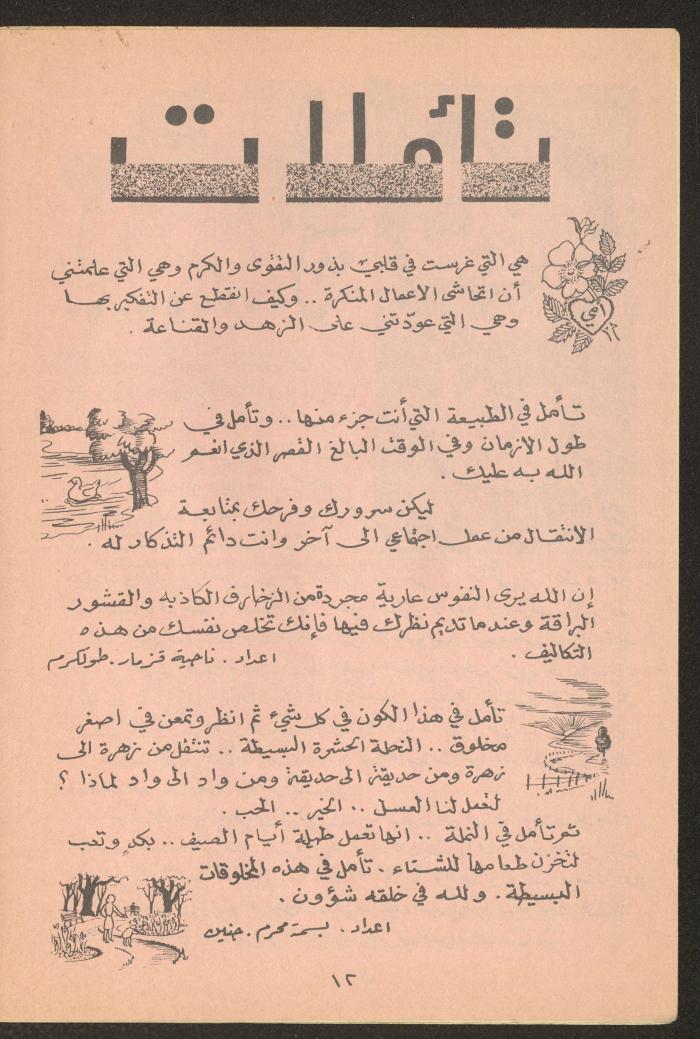 تأملات
هي التي غرست في قلبي بذور التقوى والكرم وهي التي علمتني
أن اتحاشى الاعمال المنكرة .. وكيف انقطع عن التفكير بها
وهي التي عوّدتني على الزهد والقناعة .
امي
تأمل في الطبيعة التي أنت جزء منها .. وتأمل في
طول الازمان وفي الوقت البالغ القصر الذي انعم
الله به عليك .
ليكن سرورك وفرحك بمتابعة
الانتقال من عمل اجتماعي الى آخر وانت دائم التذكار له .
إن الله يرى النفوس عارية مجردة من الزخارف الكاذبه والقشور
البراقة وعندما تديم نظرك فيها فإنك تخلص نفسك من هذه
التكاليف .
اعداد . ناحية قزمار . طولكرم
تأمل في هذا الكون في كل شيء ثم انظر وتمعن في اصغر
مخلوق .. النحلة الحشرة البسيطة .. تنتقل من زهرة الى
زهرة ومن حديقة الى حديقة ومن واد الى واد لماذا ؟
لتعمل لنا العسل .. الخير .. الحب .
ثم تأمل في النملة .. انها تعمل طيلة أيام الصيف .. بكدٍ وتعب
لتخزن طعامها للشتاء . تأمل في هذه المخلوقات
البسيطة . ولله في خلقه شؤون .
اعداد . بسمة محرم . جنين
١٢